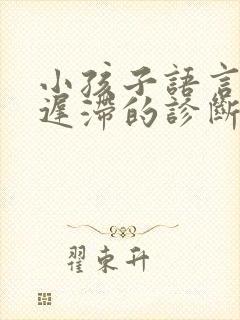 小孩子語言
遲滯的診斷
翟東升